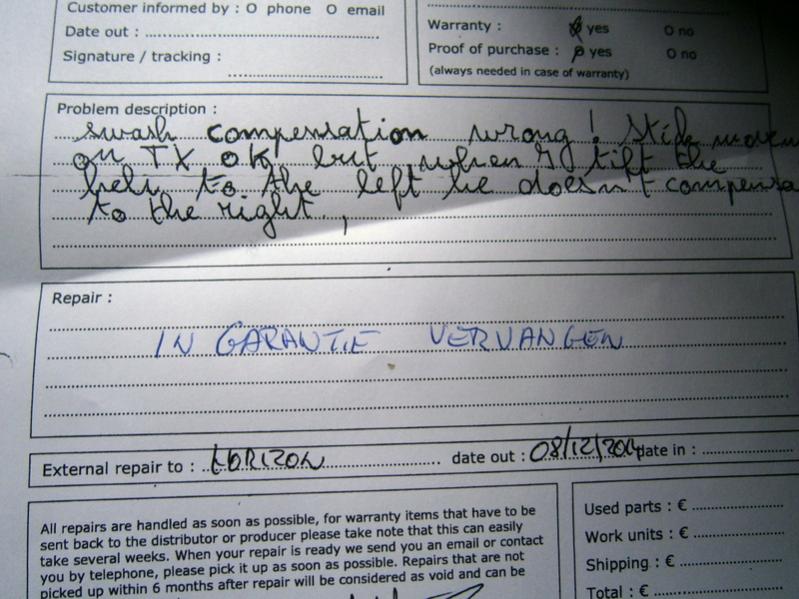 Customer informed by : O phone O email
Date out :
Signature / tracking :
Warranty : yes O no
Proof of purchase : yes O no
(always needed in case of warranty)
Problem description :
swash compensation wrong! Stick
on TX OK but when I tilt the
heli to the left he doesn't compensa
to the right.,
Repair :
IN GARANTIE VERVANGEN
External repair to : HORIZON date out : 08/12/2014 date in :
All repairs are handled as soon as possible, for warranty items that have to be
sent back to the distributor or producer please take note that this can easily
take several weeks. When your repair is ready we send you an email or contact
you by telephone, please pick it up as soon as possible. Repairs that are not
picked up within 6 months after repair will be considered as void and can be
Used parts : €
Work units : €
Shipping : €
Total : €